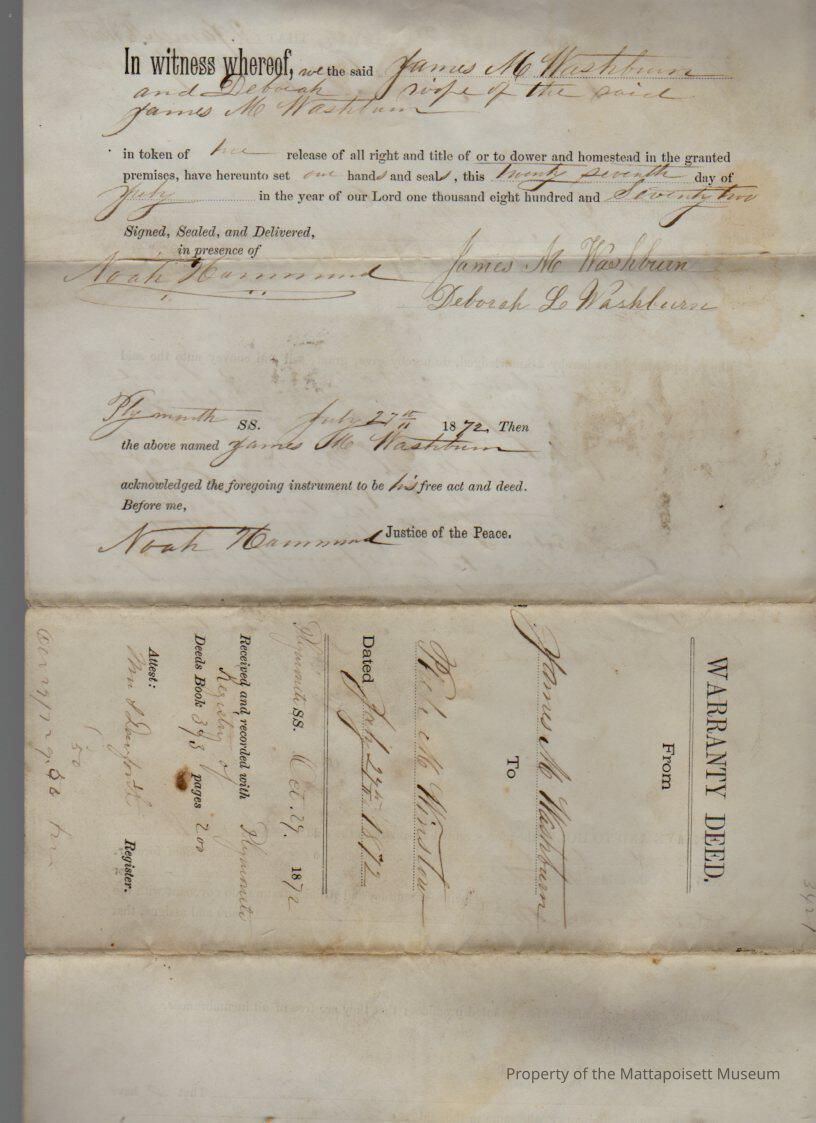 In witness whereof, we the said James M Washburn
and Deborah wife of the said
James M Washburn
in token of our release of all right and title of or to dower and homestead in the granted
premises, have hereunto set our hands and seals, this twenty seventh day of
July in the year of our Lord one thousand eight hundred and Seventy two
Signed, Sealed, and Delivered,
in presence of
Noah Hammond
James M Washburn
Deborah L Washburn
Plymouth SS. July 27th 1872. Then
the above named James M Washburn
acknowledged the foregoing instrument to be his free act and deed.
Before me,
Noah Hammond Justice of the Peace.
WARRANTY DEED.
From
James M Washburn
To
M Winslow
Dated July 27th 1872
Plymouth SS. Oct. 29. 1872
Received and recorded with Plymouth
Registry of
Deeds Book 393 pages 200
Attest:
Wm S Danforth Register.
50
Property of the Mattapoisett Museum